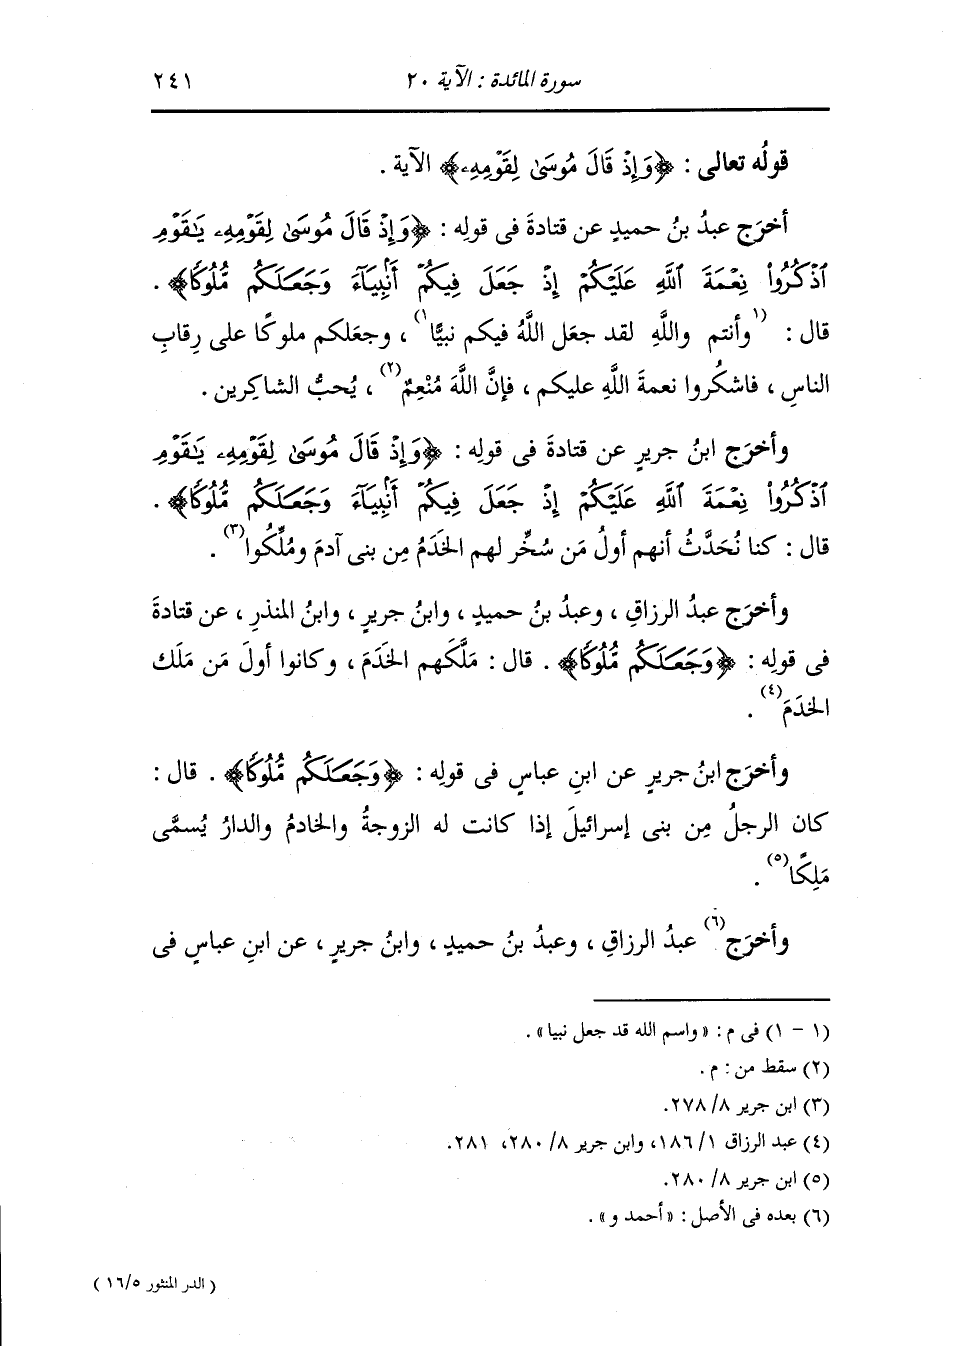 سورة المائدة : الآية ٢٠ ٢٤١
قولُه تعالى : ﴿وَإِذْ قَالَ مُوسَىٰ لِقَوْمِهِۦ﴾ الآية .
أخرَج عبدُ بنُ حميدٍ عن قتادةَ فى قولِه : ﴿وَإِذْ قَالَ مُوسَىٰ لِقَوْمِهِۦ يَٰقَوْمِ
ٱذْكُرُوا۟ نِعْمَةَ ٱللَّهِ عَلَيْكُمْ إِذْ جَعَلَ فِيكُمْ أَنۢبِيَآءَ وَجَعَلَكُم مُّلُوكًا﴾ .
قال : (١وأنتم واللَّهِ لقد جعَل اللَّهُ فيكم نبيًّا١) ، وجعَلكم ملوكًا على رِقابِ
الناسِ ، فاشكُروا نعمةَ اللَّهِ عليكم ، فإنَّ اللَّهَ مُنْعِمٌ(٢) ، يُحبُّ الشاكِرين .
وأخرَج ابنُ جريرٍ عن قتادةَ فى قولِه : ﴿وَإِذْ قَالَ مُوسَىٰ لِقَوْمِهِۦ يَٰقَوْمِ
ٱذْكُرُوا۟ نِعْمَةَ ٱللَّهِ عَلَيْكُمْ إِذْ جَعَلَ فِيكُمْ أَنۢبِيَآءَ وَجَعَلَكُم مُّلُوكًا﴾ .
قال : كنا نُحَدَّثُ أنهم أولُ مَن سُخِّر لهم الخَدَمُ مِن بنى آدمَ ومُلِّكُوا(٣) .
وأخرَج عبدُ الرزاقِ ، وعبدُ بنُ حميدٍ ، وابنُ جريرٍ ، وابنُ المنذرِ ، عن قتادةَ
فى قولِه : ﴿وَجَعَلَكُم مُّلُوكًا﴾ . قال : مَلَّكَهم الخَدَمَ ، وكانوا أولَ مَن مَلَك
الخَدَمَ(٤) .
وأخرَج ابنُ جريرٍ عن ابنِ عباسٍ فى قولِه : ﴿وَجَعَلَكُم مُّلُوكًا﴾ . قال :
كان الرجلُ مِن بنى إسرائيلَ إذا كانت له الزوجةُ والخادمُ والدارُ يُسمَّى
مَلِكًا(٥) .
وأخرَج(٦) عبدُ الرزاقِ ، وعبدُ بنُ حميدٍ ، وابنُ جريرٍ ، عن ابنِ عباسٍ فى
(١ - ١) فى م : « واسم الله قد جعل نبيا » .
(٢) سقط من : م .
(٣) ابن جرير ٨/ ٢٧٨.
(٤) عبد الرزاق ١/ ١٨٦، وابن جرير ٨/ ٢٨٠، ٢٨١.
(٥) ابن جرير ٨/ ٢٨٠.
(٦) بعده فى الأصل : « أحمد و » .
( الدر المنثور ١٦/٥ )